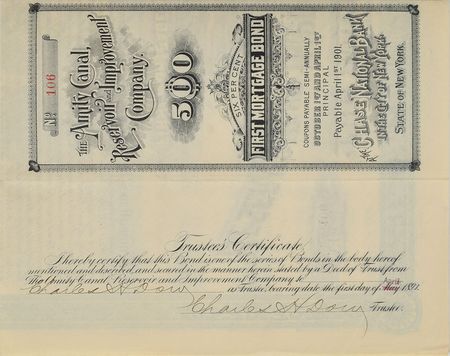 No 106
THE Amity Canal,
Reservoir and Improvement
Company.
500
SIX PER CENT.
FIRST MORTGAGE BOND
COUPONS PAYABLE SEMI-ANNUALLY
OCTOBER 1ST AND APRIL 1ST
PRINCIPAL
Payable April 1st 1901.
AT THE CHASE NATIONAL BANK
IN THE CITY OF NEW YORK,
STATE OF NEW YORK.
Trustee's Certificate.
I hereby certify that this Bond is one of the series of Bonds in the body hereof
mentioned and described, and secured in the manner herein stated by a Deed of Trust from
The Amity Canal, Reservoir and Improvement Company to
Charles H. Dow as Trustee, bearing date the first day of May 1891.
Charles H Dow
Trustee.